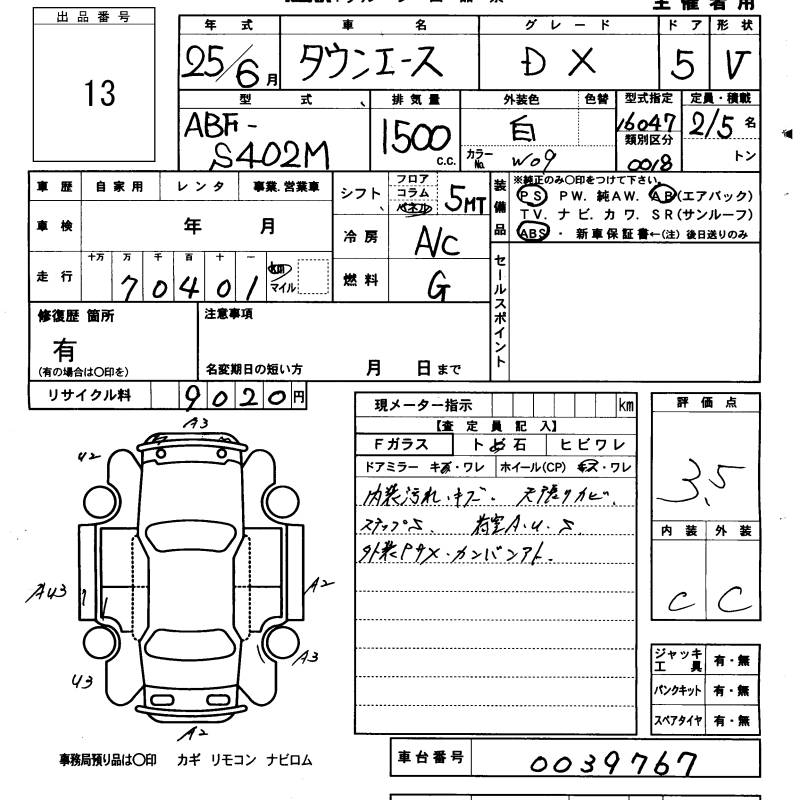 主催者用
出品番号
13
年式 車名 グレード ドア 形状
25/6月 タウンエース DX 5 V
型式 排気量 外装色 色替 型式指定 定員・積載
ABF-S402M 1500 c.c. 白 16047 2/5名
カラーNo. W09 類別区分 0018 トン
車歴 自家用 レンタ 事業.営業車
シフト フロア コラム パネル 5MT
装備品
※純正のみ〇印をつけて下さい。
PS PW. 純AW. AB(エアバック)
TV. ナビ. カワ. SR(サンルーフ)
ABS・新車保証書←(注)後日送りのみ
車検 年 月
冷房 A/C
走行 十万 万 千 百 十 一
70401 km マイル
燃料 G
セールスポイント
修復歴 箇所 注意事項
有
(有の場合は〇印を) 名変期日の短い方 月 日まで
リサイクル料 9020円
現メーター指示 km
【査定員記入】
Fガラス トビ石 ヒビワレ
ドアミラー キズ・ワレ ホイール(CP) キズ・ワレ
内装汚れ・キズ. 天張りカビ.
ステップS. 荷室A.U.S.
外装PサX・カンバンアト.
評価点
3.5
内装 外装
C C
A3
U2
AU3
A2
A3
U3
A2
ジャッキ工具 有・無
パンクキット 有・無
スペアタイヤ 有・無
事務局預り品は〇印 カギ リモコン ナビロム
車台番号 0039767